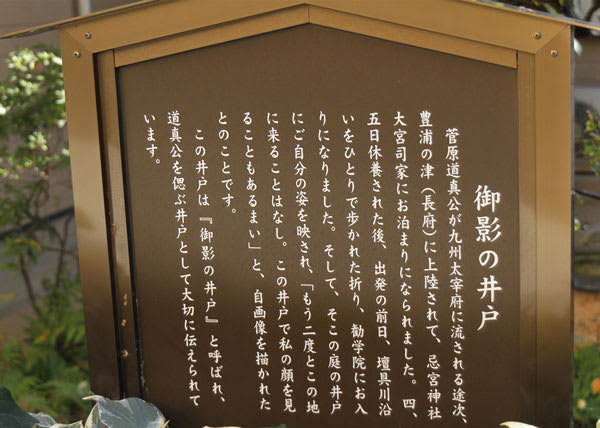 御影の井戸
菅原道真公が九州太宰府に流される途次、
豊浦の津（長府）に上陸されて、忌宮神社
大宮司家にお泊まりになられました。四、
五日休養された後、出発の前日、壇具川沿
いをひとりで歩かれた折り、勧学院にお入
りになりました。そして、そこの庭の井戸
にご自分の姿を映され、「もう二度とこの地
に来ることはなし。この井戸で私の顔を見
ることもあるまい」と、自画像を描かれた
とのことです。
この井戸は『御影の井戸』と呼ばれ、
道真公を偲ぶ井戸として大切に伝えられて
います。